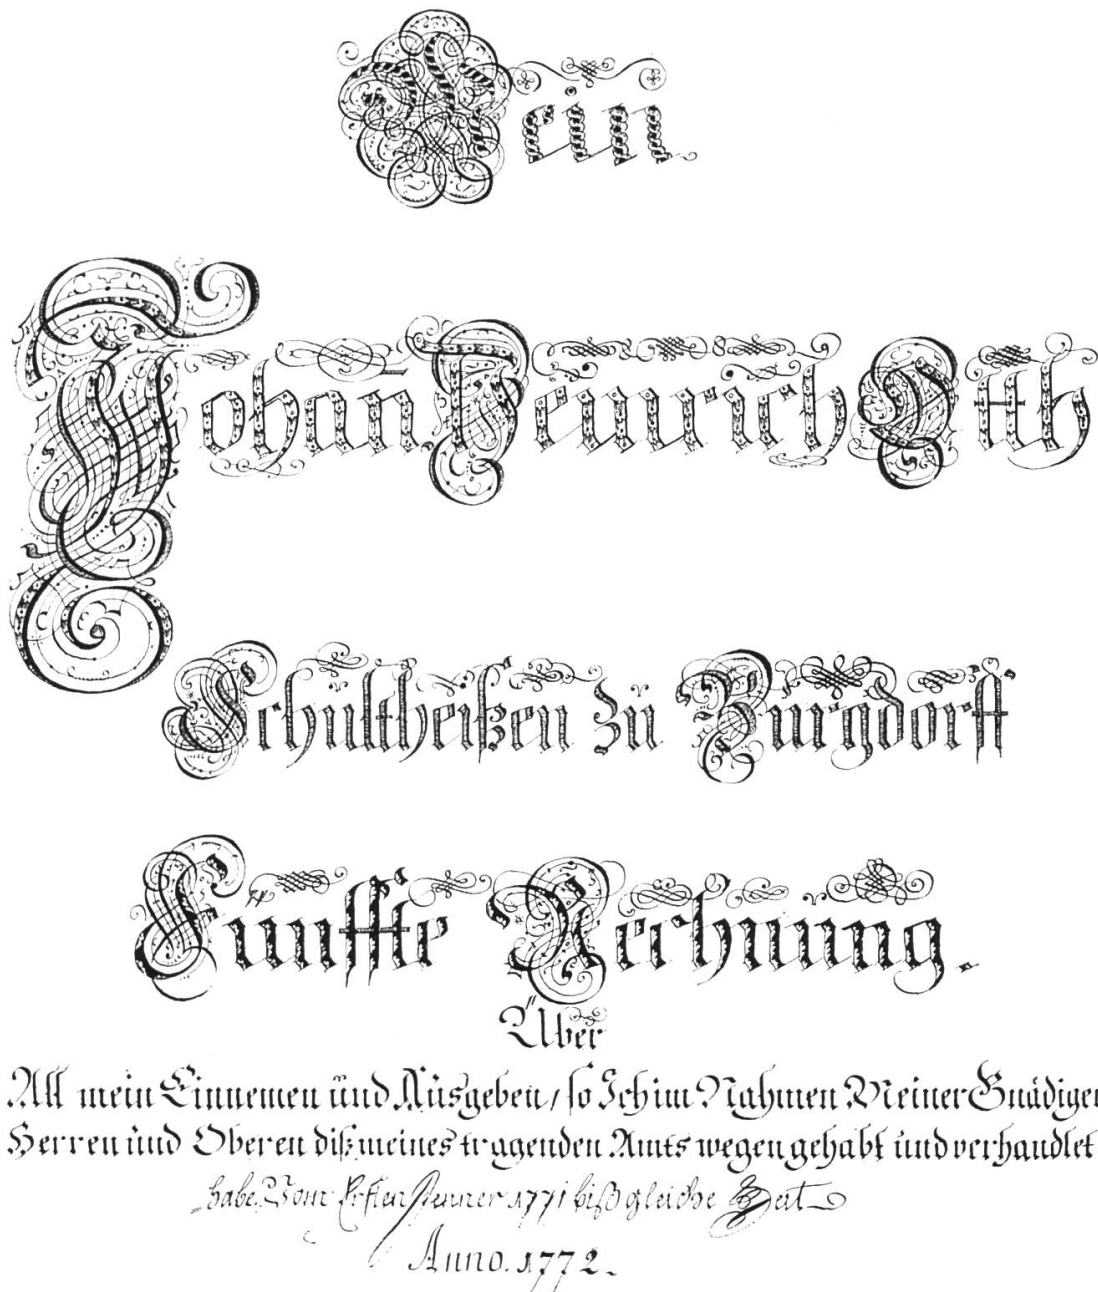 Mein
Johan Heinrich Otth
Schultheißen zu Burgdorff
Funffte Rechnung.
Über
All mein Einnemen und Ausgeben / so Ich im Nahmen Meiner Gnädigen
Herren und Oberen diß meines tragenden Amts wegen gehabt und verhandlet
habe. Vom Ersten Jenner 1771 biß gleiche Zeit
Anno. 1772.